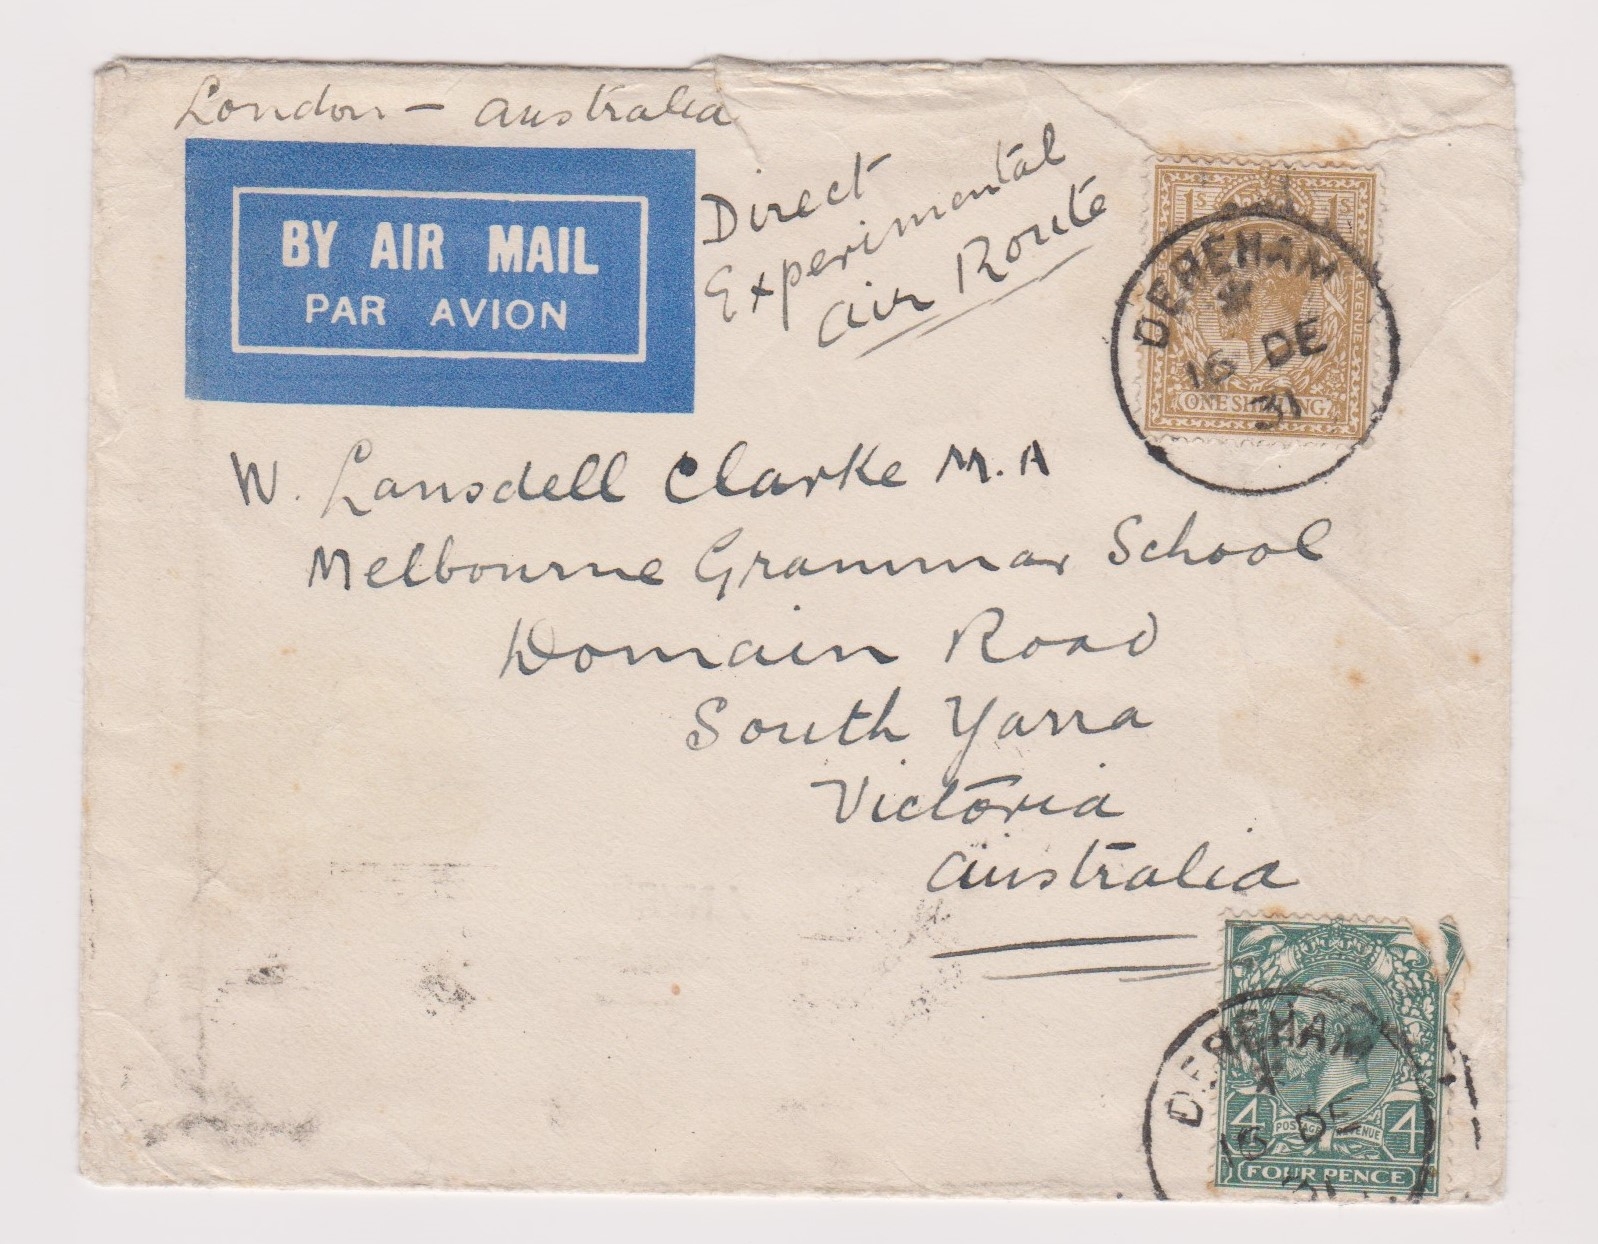 London – Australia
BY AIR MAIL
PAR AVION
Direct
Experimental
Air Route
1S 1S
ONE SHILLING
DEREHAM
16 DE
31
W. Lansdell Clarke M.A
Melbourne Grammar School
Domain Road
South Yarra
Victoria
Australia
DEREHAM
16 DE
31
4 POSTAGE REVENUE 4
FOUR PENCE